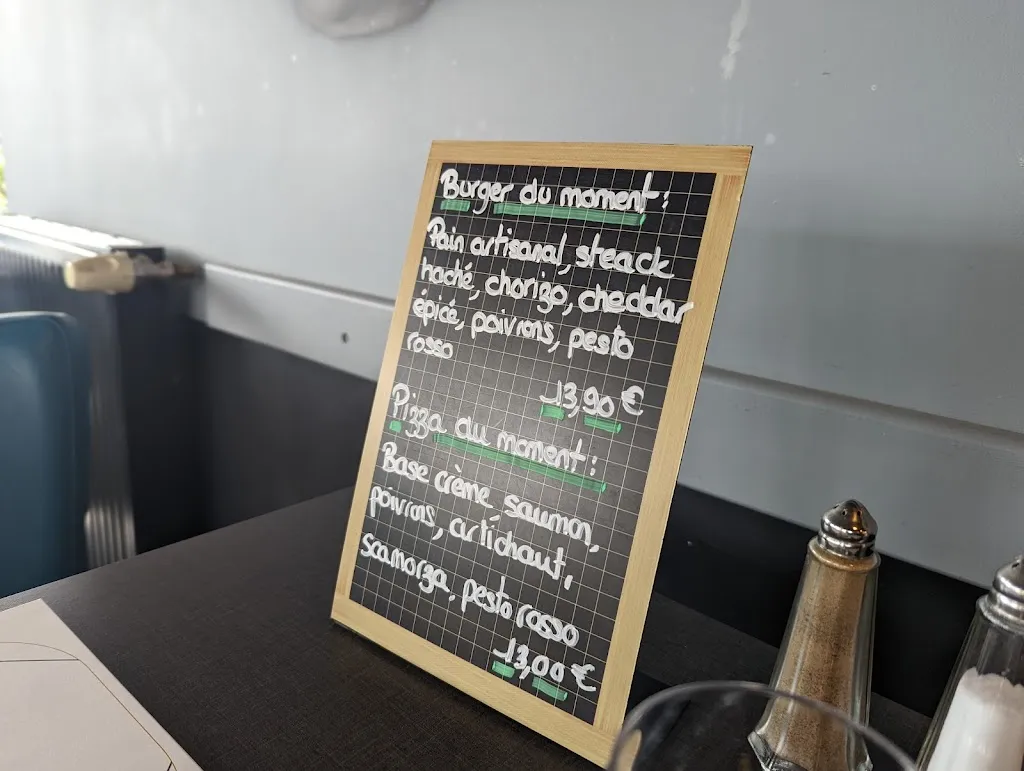 Burger du moment :
Pain artisanal, steack
haché, chorizo, cheddar
épicé, poivrons, pesto
rosso
13,90 €
Pizza du moment :
Base crème, saumon,
poivrons, artichaut,
scamorza, pesto rosso
13,00 €